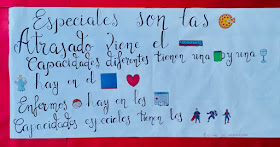 Especiales son las
Atrasado viene el
Capacidades diferentes tienen una y una
hay en el
Enfermos hay en los
Capacidades especiales tienen los